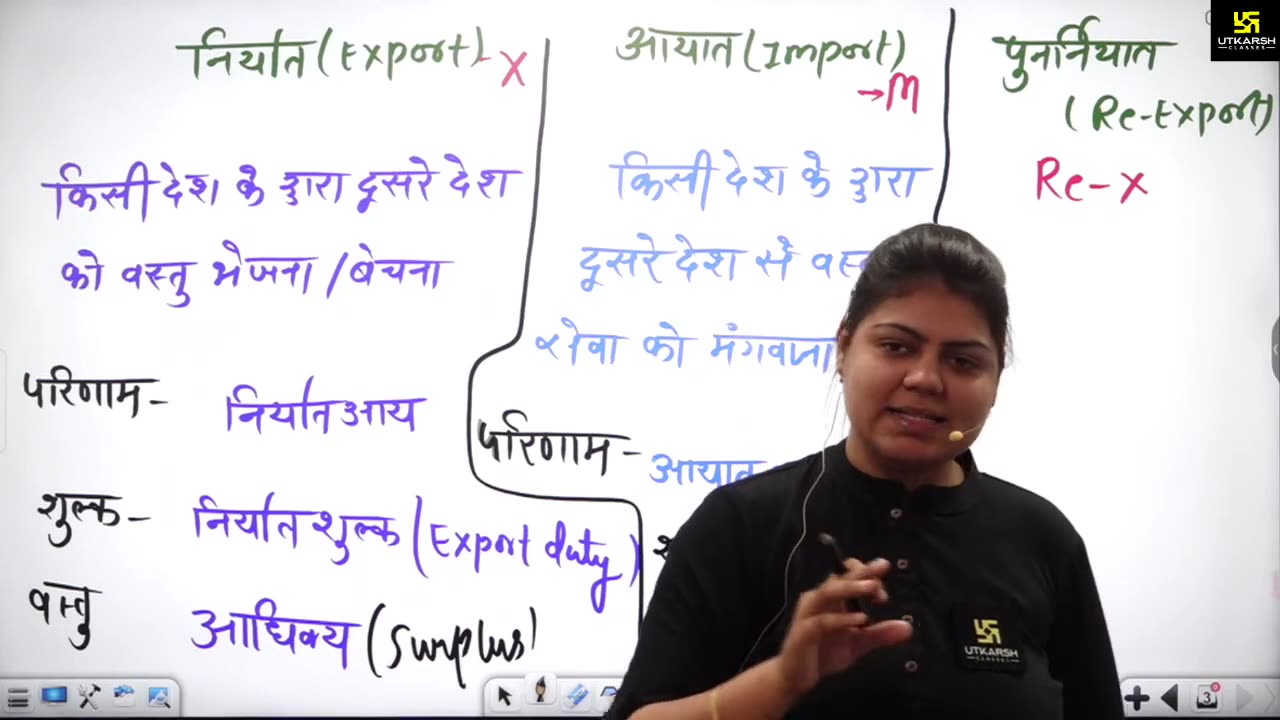 निर्यात (Export) - X
किसी देश के द्वारा दूसरे देश
को वस्तु भेजना / बेचना
परिणाम - निर्यात आय
शुल्क - निर्यात शुल्क (Export duty)
वस्तु आधिक्य (Surplus)
आयात (Import)
→ M
किसी देश के द्वारा
दूसरे देश से
सेवा को मंगवाना
परिणाम - आयात
पुनर्निर्यात
(Re-Export)
Re-X
UTKARSH
CLASSES
UTKARSH
CLASSES
3